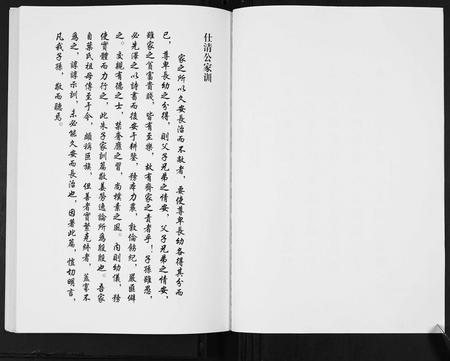 仕清公家訓
家之所以久安長治而不敝者，要使尊卑長幼各得其分而
已，尊卑長幼之分得，則父子兄弟之情安，父子兄弟之情安，
雖家之貧富貴賤，皆有至樂，故有齊家之責者乎！子孫雖愚，
必先澤之以詩書而後安于耕鑿，務本力農，敦倫飭紀，嚴匪僻
之。交親有德之士，禁奢靡之習，尚樸素之風。內則幼儀，務
使實體而力行之，此朱子家訓篇敬姜勞逸論所爲殷殷也。吾家
自葉氏祖母傳至于今，頗稱匪族，但善者實繁克終者，蓋寡不
爲之，諄諄示訓，未必能久安而長治也，因著此篇，愷切明言，
凡我子孫，敬而聽焉。